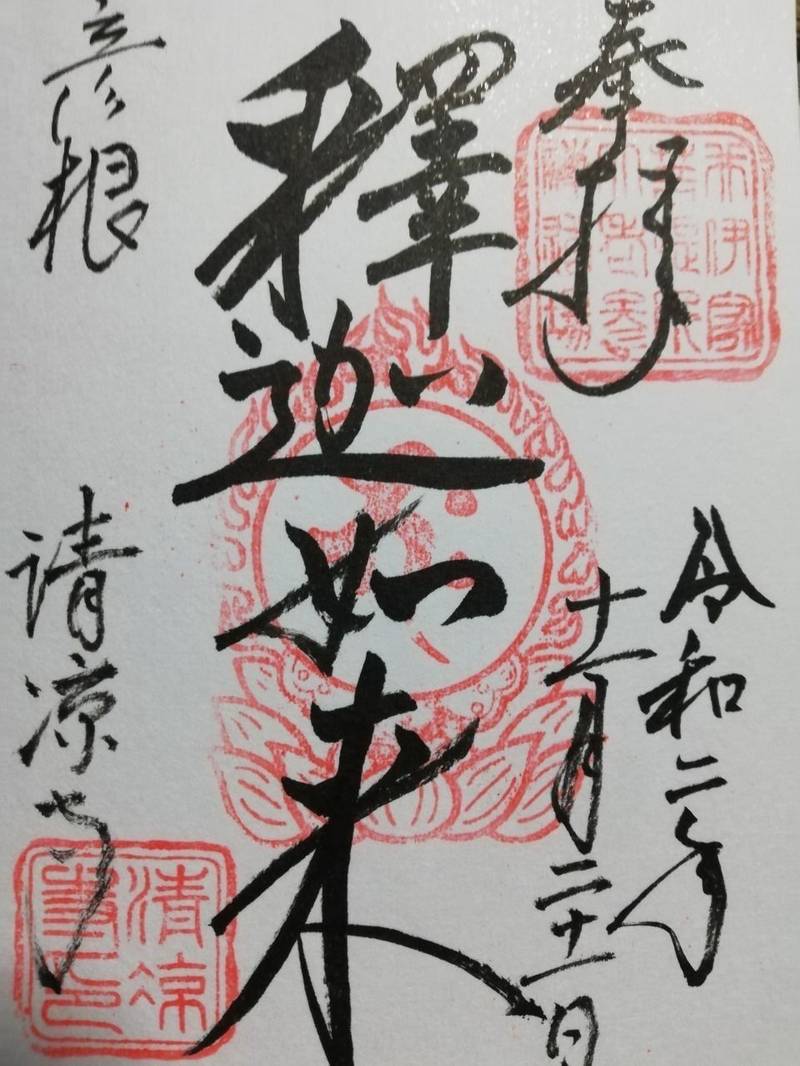 奉拝
井伊家
菩提所
大老参
禅道場
令和二年
十一月二十一日
釋迦如来
彦根
清凉寺
清凉